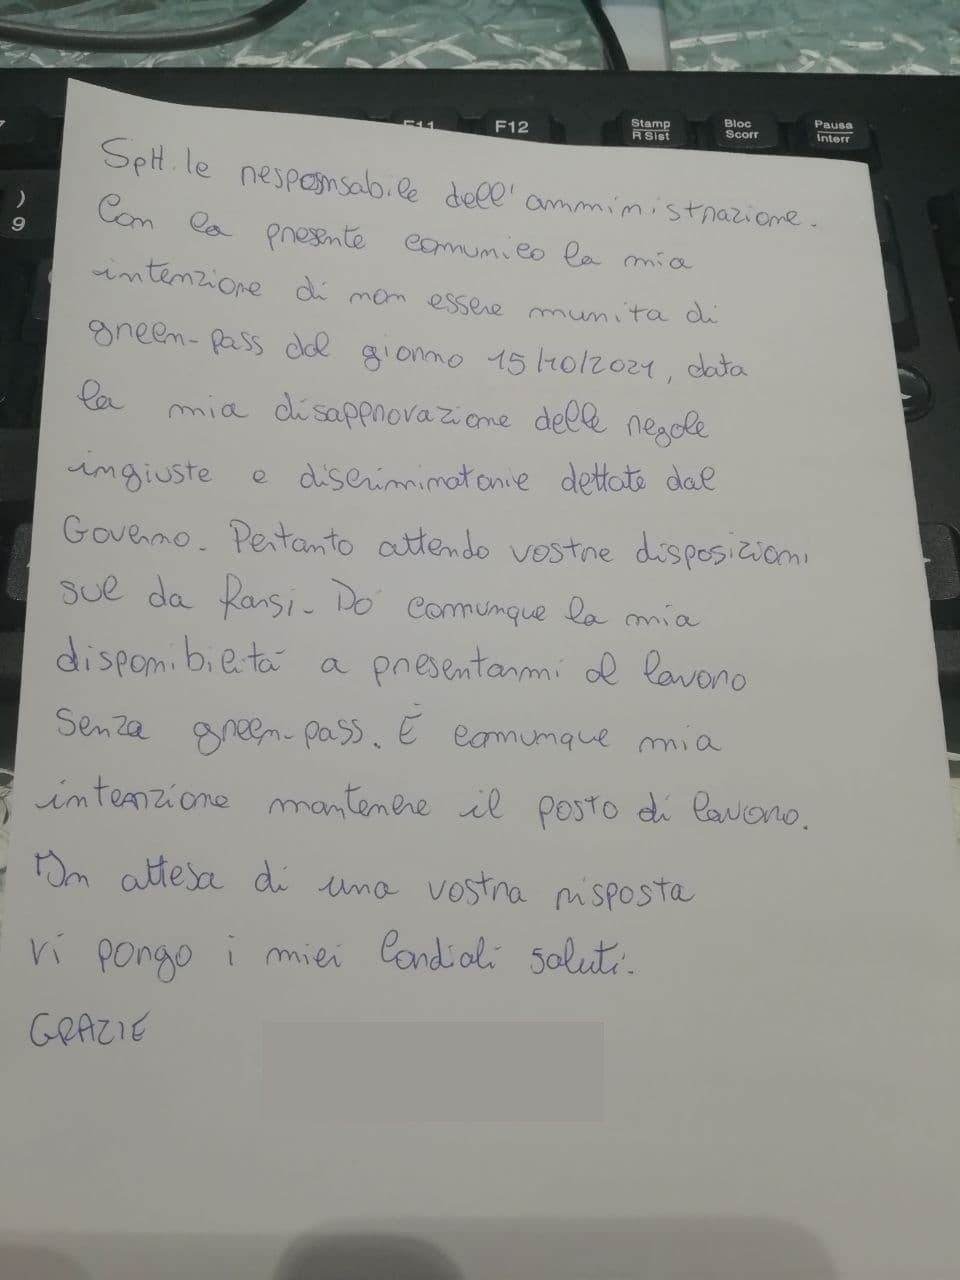 F11
F12
Stamp
R Sist
Bloc
Scorr
Pausa
Interr
)
9
Sptt.le responsabile dell'amministrazione.
Con la presente comunico la mia
intenzione di non essere munita di
green-pass dal giorno 15/10/2021, data
la mia disapprovazione delle regole
ingiuste e discriminatorie dettate dal
Governo. Pertanto attendo vostre disposizioni
sul da farsi. Do' comunque la mia
disponibilità a presentarmi al lavoro
senza green-pass. È comunque mia
intenzione mantenere il posto di lavoro.
In attesa di una vostra risposta
vi porgo i miei Cordiali saluti.
GRAZIE